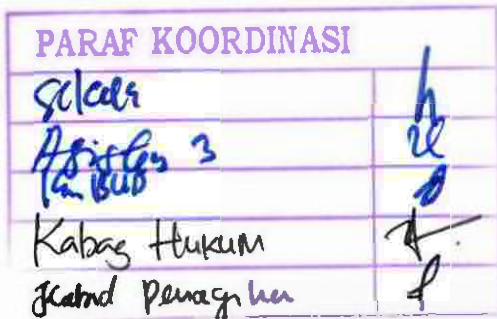 PARAF KOORDINASI
Sekda
Asisten 3
Kabag Hukum
Kabid Penagihan